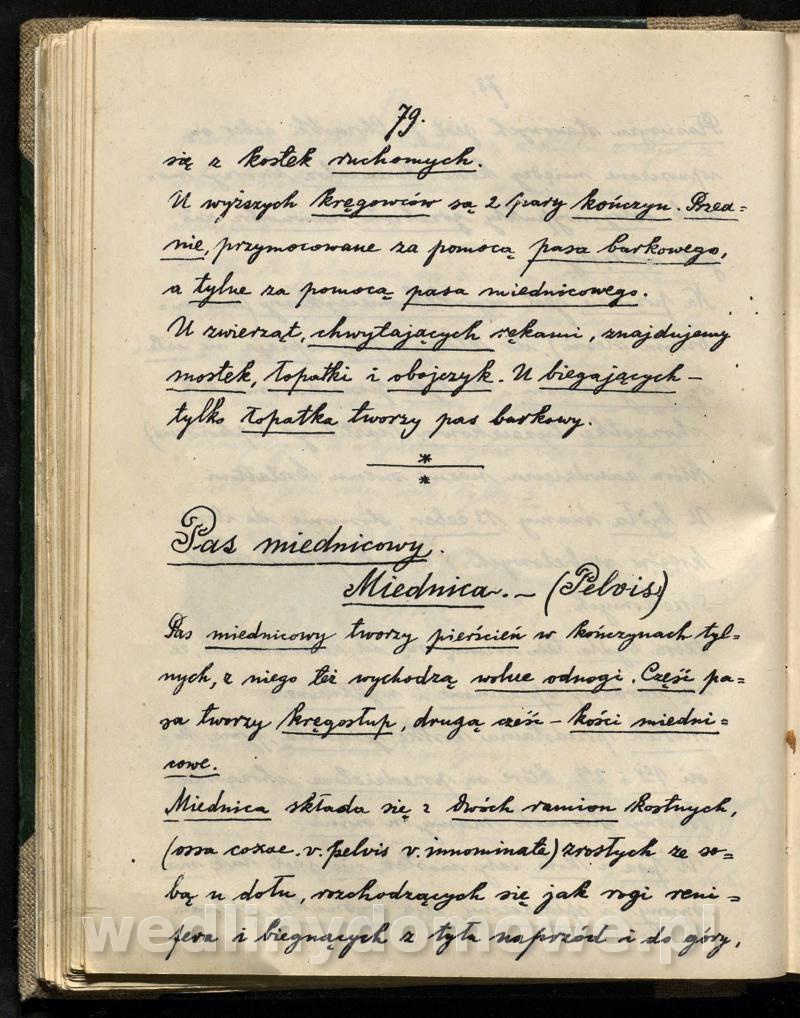 79.
się z kostek ruchomych.
U wyższych kręgowców są 2 pary kończyn. Przed=
nie, przymocowane za pomocą pasa barkowego,
a tylne za pomocą pasa miednicowego.
U zwierząt, chwytających rękami, znajdujemy
mostek, łopatki i obojczyk. U biegających –
tylko łopatka tworzy pas barkowy.
*
*
Pas miednicowy.
Miednica. – (Pelvis)
Pas miednicowy tworzy pierścień w kończynach tyl=
nych, z niego też wychodzą wolne odnogi. Część pa=
sa tworzy kręgosłup, drugą cześć – kości miedni=
cowe.
Miednica składa się z dwóch ramion kostnych,
(ossa coxae. v. pelvis v. innominata) zrosłych ze so=
bą u dołu, rozchodzących się jak rogi reni=
fera i biegnących z tyłu naprzód i do góry,
wedlinydomowe.pl